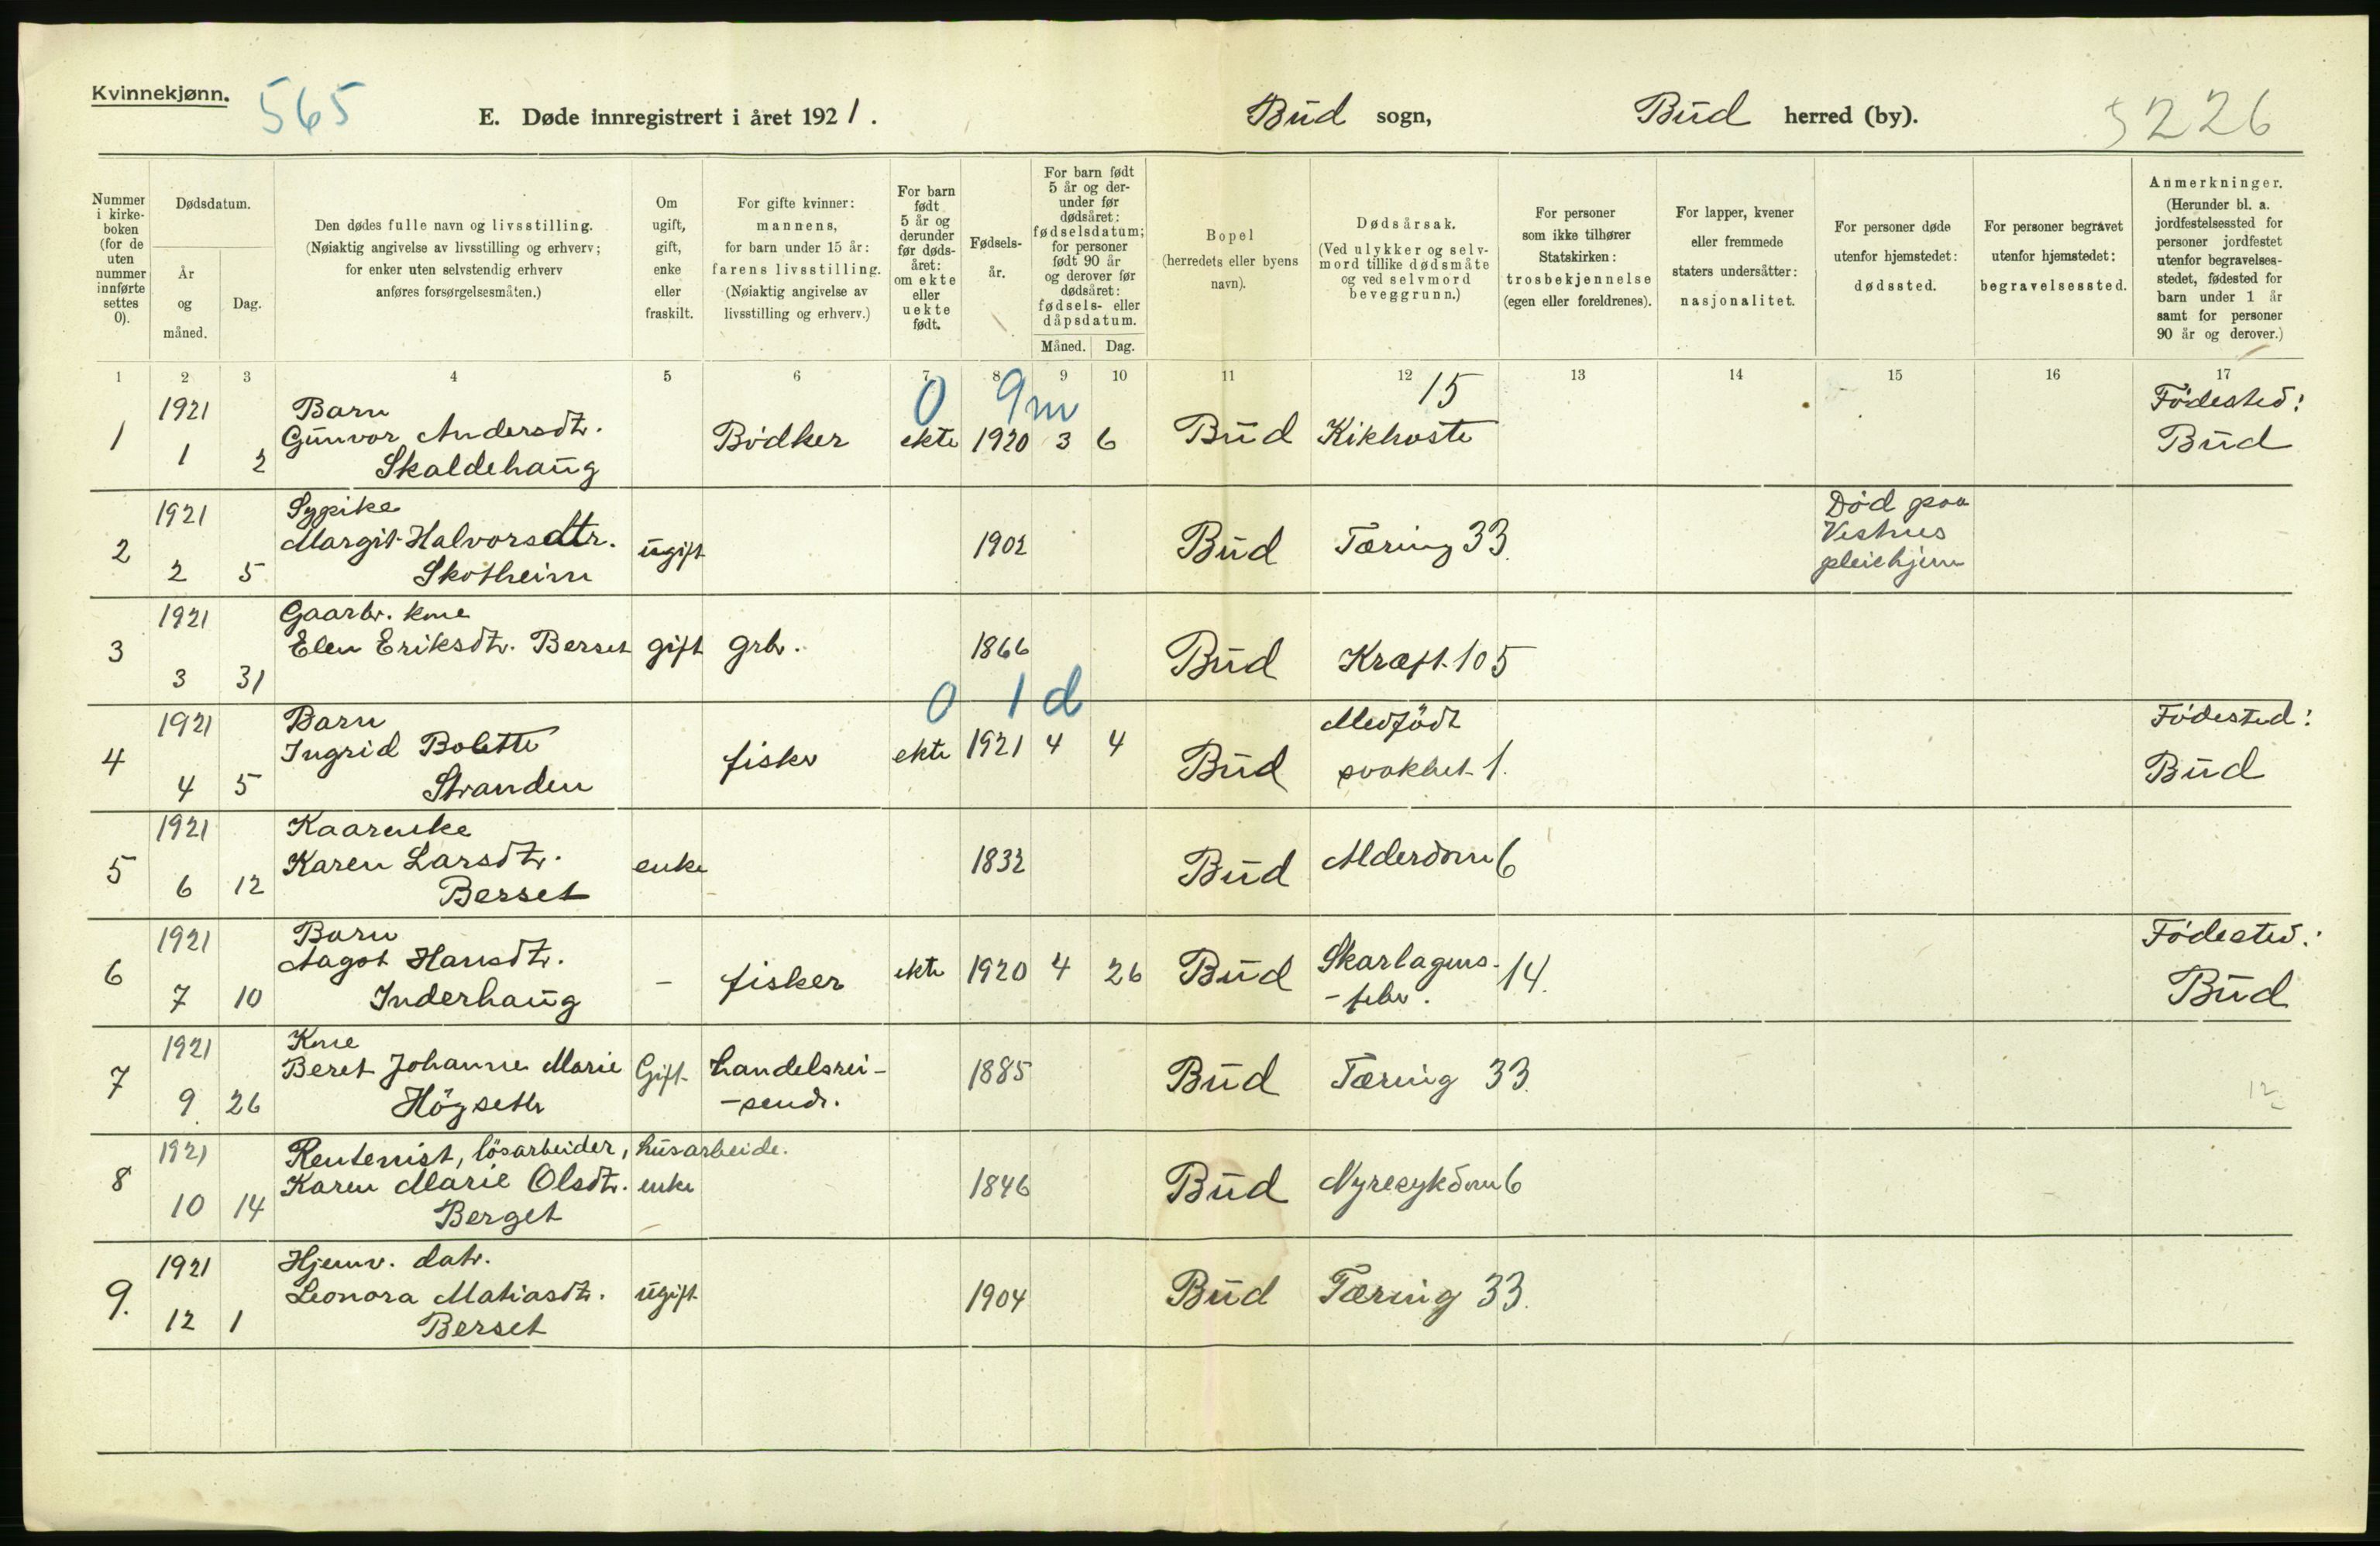 Kvinnekjønn.
565
E. Døde innregistrert i året 1921.
Bud sogn,
Bud herred (by).
5226
Nummer i kirke-boken (for de uten nummer innførte settes 0).
Dødsdatum.
År og måned.
Dag.
Den dødes fulle navn og livsstilling.
(Nøiaktig angivelse av livsstilling og erhverv;
for enker uten selvstendig erhverv
anføres forsørgelsesmåten.)
Om ugift, gift, enke eller fraskilt.
For gifte kvinner:
mannens,
for barn under 15 år:
farens livsstilling.
(Nøiaktig angivelse av
livsstilling og erhverv.)
For barn født 5 år og derunder før døds-året: om ekte eller uekte født.
Fødsels-år.
For barn født 5 år og der-under før dødsåret: fødselsdatum; for personer født 90 år og derover før dødsåret: fødsels- eller dåpsdatum.
Måned. Dag.
Bopel
(herredets eller byens
navn).
Dødsårsak.
(Ved ulykker og selv-
mord tillike dødsmåte
og ved selvmord
beveggrunn.)
For personer
som ikke tilhører
Statskirken:
trosbekjennelse
(egen eller foreldrenes).
For lapper, kvener
eller fremmede
staters undersåtter:
nasjonalitet.
For personer døde
utenfor hjemstedet:
dødssted.
For personer begravet
utenfor hjemstedet:
begravelsessted.
Anmerkninger.
(Herunder bl. a.
jordfestelsessted for
personer jordfestet
utenfor begravelses-
stedet, fødested for
barn under 1 år
samt for personer
90 år og derover.)
1 2 3 4 5 6 7 8 9 10 11 12 13 14 15 16 17
0 9m 15
1 1921 1 2
Barn
Gunvor Andersdtr.
Skaldehaug
Bødker ekte 1920 3 6 Bud Kikhoste
Fødested:
Bud
2 1921 2 5
Sypike
Margit Halvorsdtr.
Skotheim
ugift 1902 Bud Tæring 33.
Død paa
pleiehjem
3 1921 3 31
Gaarbr. kme
Elen Eriksdtr. Berset gift grb. 1866 Bud Kræft 105
0 1d
4 1921 4 5
Barn
Ingrid Bolette
Stranden
fisker ekte 1921 4 4 Bud
Medfödt
svakhet 1.
Födested:
Bud
5 1921 6 12
Kaarenke
Karen Larsdtr.
Berset
enke 1832 Bud Alderdom 6
6 1921 7 10
Barn
Aagot Hansdtr.
Inderhaug
- fisker ekte 1920 4 26 Bud
Skarlagens-
-feber. 14.
Fødested:
Bud
7 1921 9 26
Kme
Beret Johanne Marie
Högseth
Gift handelsrei-
-sende.
1885 Bud Tæring 33.
12
8 1921 10 14
Rentenist, lösarbeider, husarbeide.
Karen Marie Olsdtr.
Berget
enke 1846 Bud Nyresykdom 6
9. 1921 12 1
Hjemv. datr.
Leonora Matiasdtr.
Berset
ugift 1904 Bud Tæring 33.